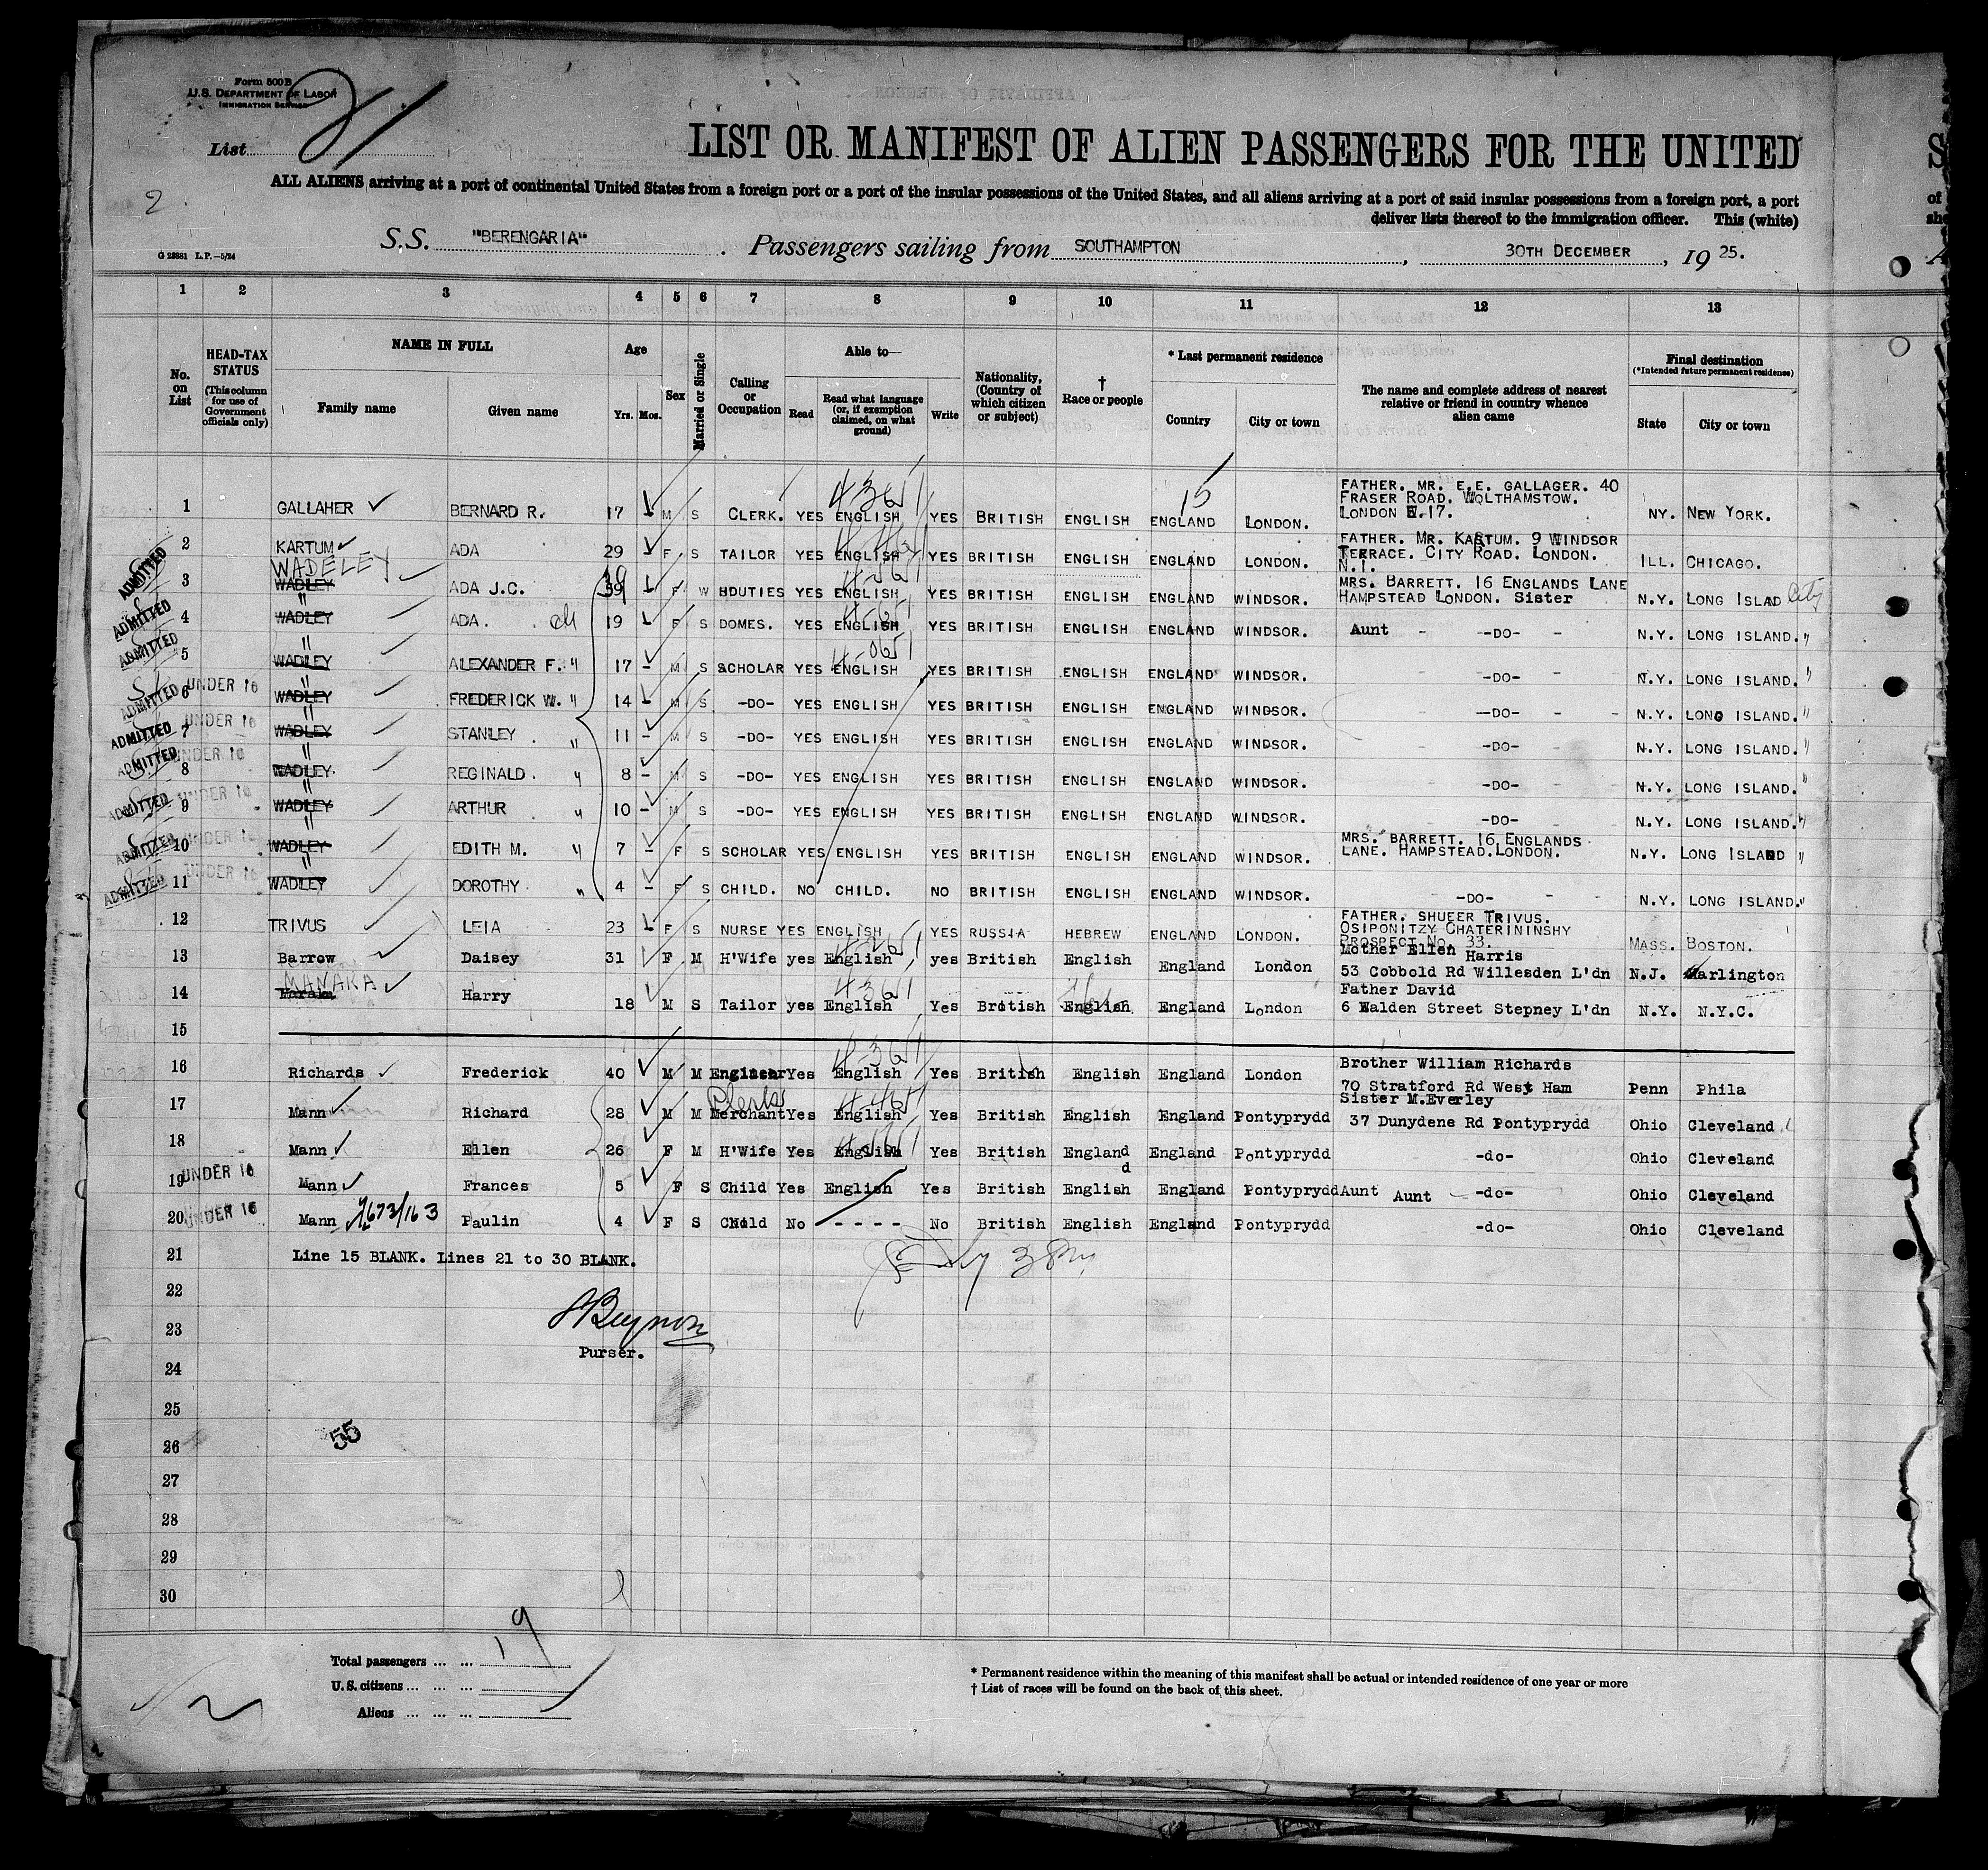 Form 500 B
U.S. DEPARTMENT OF LABOR
IMMIGRATION SERVICE
List 21
LIST OR MANIFEST OF ALIEN PASSENGERS FOR THE UNITED
S
ALL ALIENS arriving at a port of continental United States from a foreign port or a port of the insular possessions of the United States, and all aliens arriving at a port of said insular possessions from a foreign port, a port
of
2
deliver lists thereof to the immigration officer. This (white)
S.S. "BERENGARIA". Passengers sailing from SOUTHAMPTON, 30TH DECEMBER, 19 25.
G 23881 L.P.—5/24
1 2 3 4 5 6 7 8 9 10 11 12 13
No. on List
HEAD-TAX STATUS (This column for use of Government officials only)
NAME IN FULL
Family name
Given name
Age
Yrs. Mos.
Sex
Married or Single
Calling or Occupation
Able to—
Read
Read what language (or, if exemption claimed, on what ground)
Write
Nationality, (Country of which citizen or subject)
† Race or people
* Last permanent residence
Country
City or town
The name and complete address of nearest relative or friend in country whence alien came
Final destination
(*Intended future permanent residence)
State
City or town
15
1 GALLAHER BERNARD R. 17 - M S CLERK. YES ENGLISH YES BRITISH ENGLISH ENGLAND LONDON. FATHER. MR. E.E. GALLAGER. 40 FRASER ROAD. WOLTHAMSTOW. LONDON E.17. NY. NEW YORK.
2 KARTUM ADA 29 - F S TAILOR YES ENGLISH YES BRITISH ENGLISH ENGLAND LONDON. FATHER. MR. KARTUM. 9 WINDSOR TERRACE. CITY ROAD. LONDON. N.I. ILL. CHICAGO.
WADELEY
ADMITTED 3 WADLEY ADA J.C. 39 - F W HDUTIES YES ENGLISH YES BRITISH ENGLISH ENGLAND WINDSOR. MRS. BARRETT. 16 ENGLANDS LANE HAMPSTEAD LONDON. Sister N.Y. LONG ISLAND City
ADMITTED 4 " WADLEY ADA. 19 - F S DOMES. YES ENGLISH YES BRITISH ENGLISH ENGLAND WINDSOR. Aunt - -DO- - N.Y. LONG ISLAND. "
ADMITTED 5 " WADLEY ALEXANDER F. " 17 - M S SCHOLAR YES ENGLISH YES BRITISH ENGLISH ENGLAND WINDSOR. -DO- N.Y. LONG ISLAND. "
ADMITTED 6 UNDER 16 " WADLEY FREDERICK W. " 14 - M S -DO- YES ENGLISH YES BRITISH ENGLISH ENGLAND WINDSOR. -DO- N.Y. LONG ISLAND. "
ADMITTED 7 UNDER 16 " WADLEY STANLEY. " 11 - M S -DO- YES ENGLISH YES BRITISH ENGLISH ENGLAND WINDSOR. -DO- N.Y. LONG ISLAND. "
ADMITTED 8 UNDER 16 " WADLEY. REGINALD. " 8 - M S -DO- YES ENGLISH YES BRITISH ENGLISH ENGLAND WINDSOR. -DO- N.Y. LONG ISLAND. "
ADMITTED 9 UNDER 16 " WADLEY ARTHUR " 10 - M S -DO- YES ENGLISH YES BRITISH ENGLISH ENGLAND WINDSOR. -DO- N.Y. LONG ISLAND. "
ADMITTED 10 UNDER 16 " WADLEY EDITH M. " 7 - F S SCHOLAR YES ENGLISH YES BRITISH ENGLISH ENGLAND WINDSOR. MRS. BARRETT. 16 ENGLANDS LANE. HAMPSTEAD.LONDON. N.Y. LONG ISLAND "
ADMITTED 11 UNDER 16 " WADLEY DOROTHY " 4 - F S CHILD. NO CHILD. NO BRITISH ENGLISH ENGLAND WINDSOR. -DO- N.Y. LONG ISLAND. "
12 TRIVUS LEIA 23 - F S NURSE YES ENGLISH YES RUSSIA HEBREW ENGLAND LONDON. FATHER. SHUEER TRIVUS. OSIPONITZY CHATERININSHY PROSPECT NO. 33. MASS. BOSTON.
13 Barrow Daisey 31 F M H'Wife yes English yes British English England London Mother Ellen Harris 53 Cobbold Rd Willesden L'dn N.J. Harlington
MANAKA
14 Harry 18 M S Tailor yes English Yes British English England London Father David 6 Walden Street Stepney L'dn N.Y. N.Y.C.
15
16 Richards Frederick 40 M M Engineer Yes English Yes British English England London Brother William Richards 70 Stratford Rd West Ham Penn Phila
17 Mann Richard 28 M M Merchant Clerk Yes English Yes British English England Pontyprydd Sister M.Everley 37 Dunydene Rd Pontyprydd Ohio Cleveland
18 Mann Ellen 26 F M H'Wife Yes English Yes British England England Pontyprydd -do- Ohio Cleveland
19 UNDER 16 Mann Frances 5 F S Child Yes English Yes British English England Pontyprydd Aunt Aunt -do- Ohio Cleveland
20 UNDER 16 Mann 1673/163 Paulin 4 F S Child No - - - - No British English England Pontyprydd -do- Ohio Cleveland
21 Line 15 BLANK. Lines 21 to 30 BLANK.
22
23
Purser.
24
25
55
26
27
28
29
30
Total passengers ... ... 19
U.S. citizens ... ... ...
Aliens ... ... ...
* Permanent residence within the meaning of this manifest shall be actual or intended residence of one year or more
† List of races will be found on the back of this sheet.